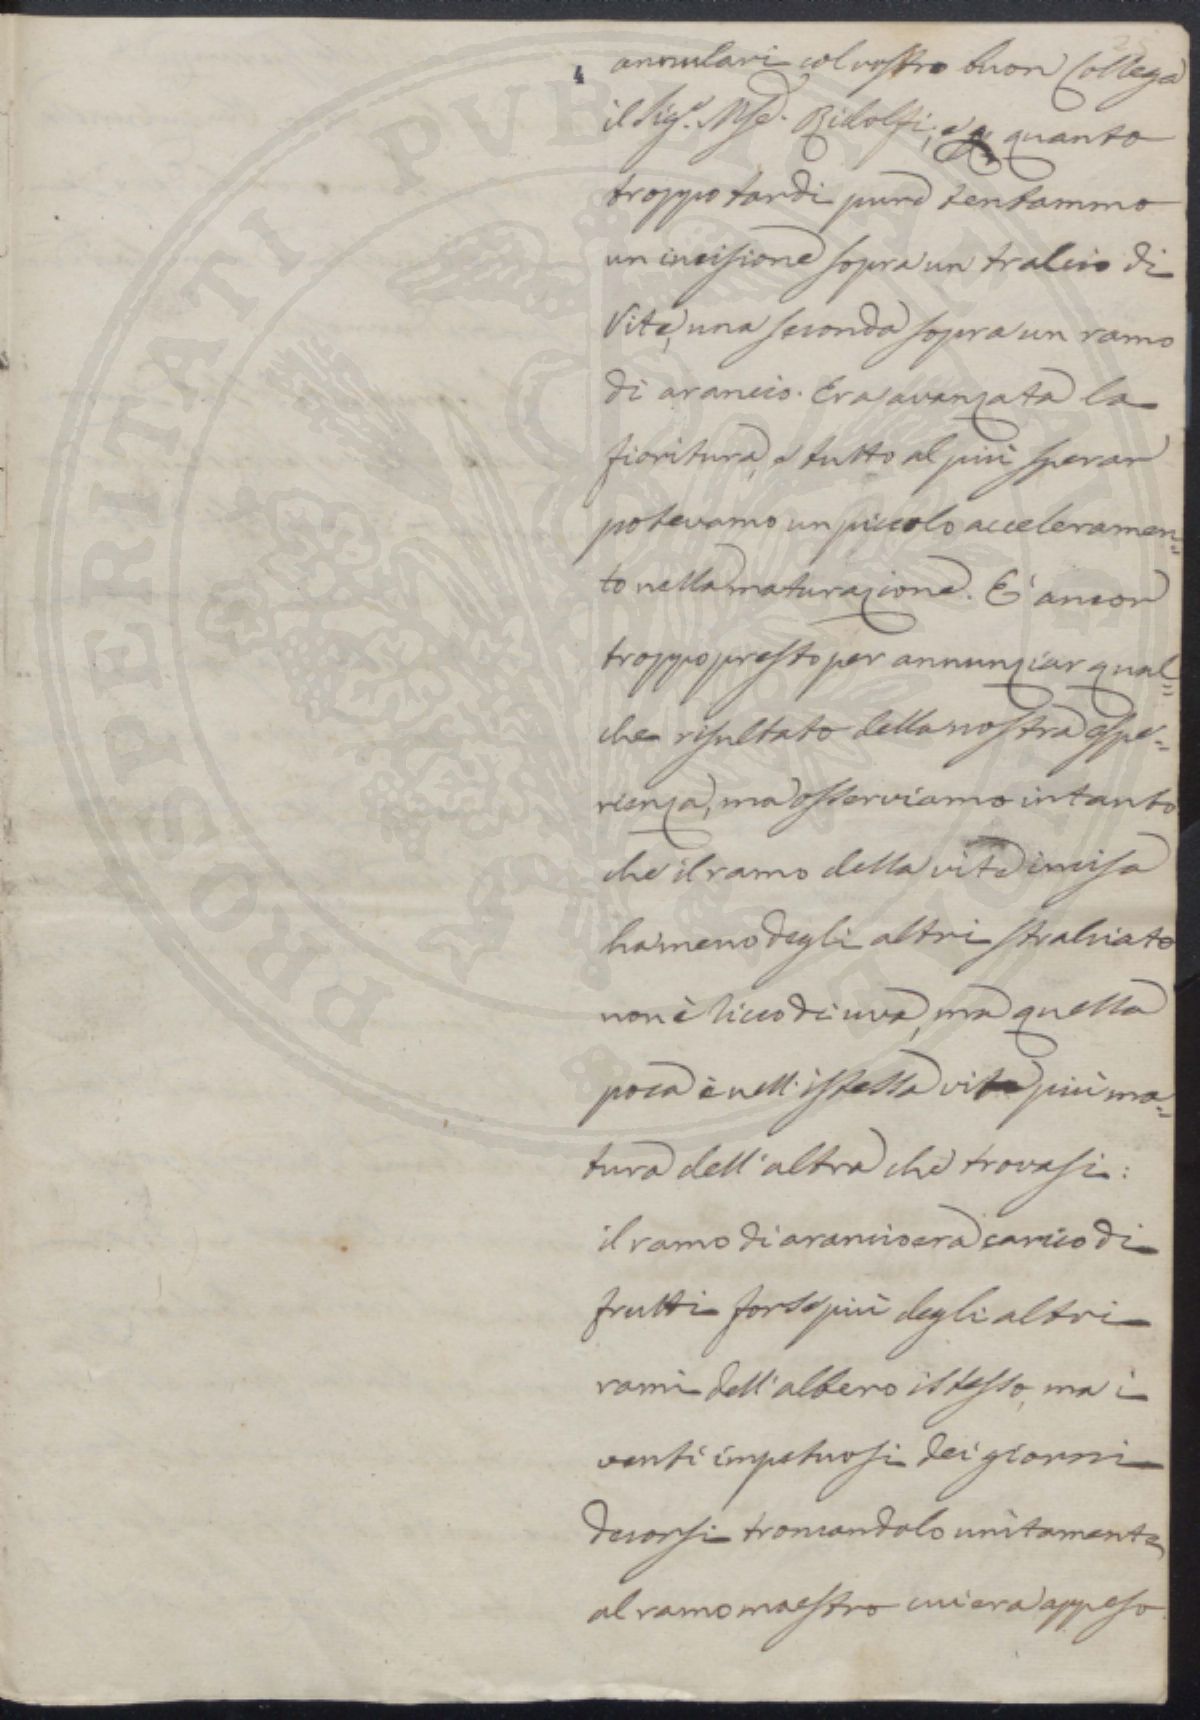 annulari col vostro buon Collega
il Sig.r Mse. Ridolfi; e quanto
troppo tardi pure tentammo
un incisione sopra un tralcio di
Vite, una seconda sopra un ramo
di arancio. Era avanzata la
fioritura, e tutto al più sperar
potevamo un piccolo acceleramen=
to nella maturazione. E' ancor
troppo presto per annunziar qual=
che risultato della nostra espe=
rienza, ma osserviamo intanto
che il ramo della vite incisa
ha meno degli altri stralciato
non è ricco di uva, ma quella
poca è nell'istessa vite più ma=
tura dell'altra che trovasi:
il ramo di arancio era carico di
frutti forse più degli altri
rami dell'albero istesso, ma i
venti impetuosi dei giorni
decorsi troncandolo unitamente
al ramo maestro cui era appeso
PROSPERITATI PUBLICAE